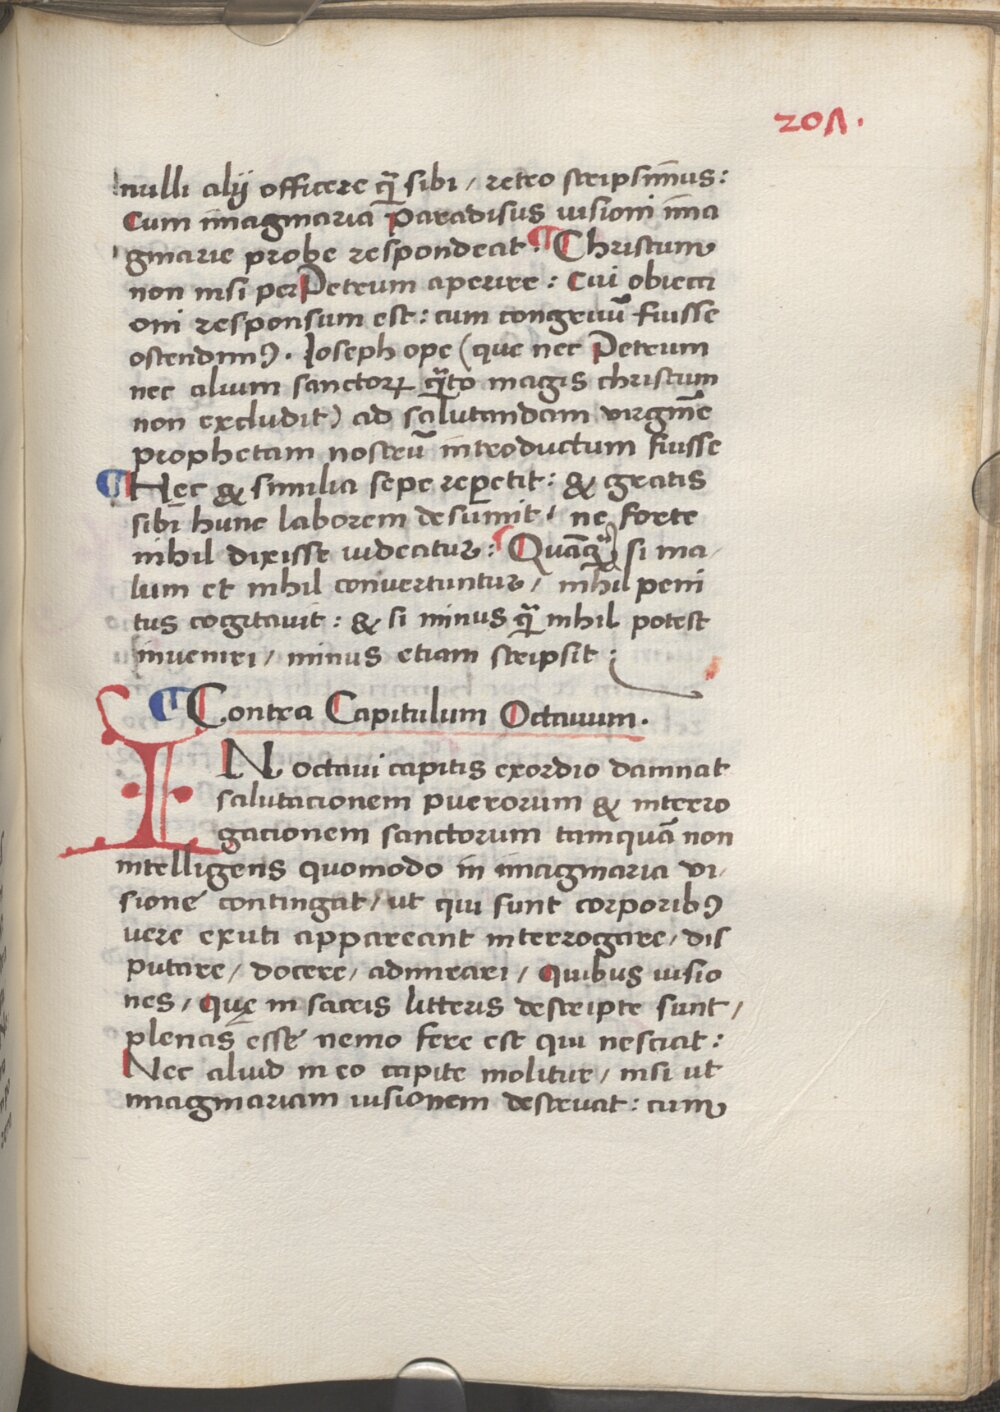 207.
nulli alij officere q̄ sibi / retro scripsimus:
Cum imaginaria Paradisus uisioni ima
ginarie probe respondeat: ¶ Christum
non nisi per Petrum aperire: Cui obiecti
oni responsum est: cum congruū fuisse
ostendimꝰ. Joseph ope (que nec Petrum
nec alium sanctoꝝ q̄to magis christum
non excludit) ad salutandam virginē
prophetam nostrū introductum fuisse
¶ Hec & similia sepe repetit: & gratis
sibi hunc laborem desumit / ne forte
nihil dixisse uideatur: Quāqꝫ si ma/
lum et nihil conuertuntur / nihil peni
tus cogitauit: & si minus q̄ nihil potest
inueniri / minus etiam scripsit:
¶ Contra Capitulum Octauum.
IN octaui capitis exordio damnat
salutacionem puerorum & interro
gacionem sanctorum tamquā non
intelligens quomodo in imaginaria vi/
sione contingat / ut qui sunt corporibꝰ
uere exuti appareant interrogare / dis
putare / docere / admirari / Quibus uisio
nes / Quę in sacris litteris descripte sunt /
plenas esse nemo fere est qui nesciat:
Nec aliud in eo capite molitur / nisi ut
imaginariam uisionem destruat: cum